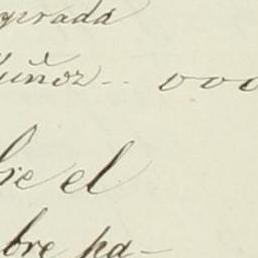 grada
uñoz... ooo
bre el
bre pa-